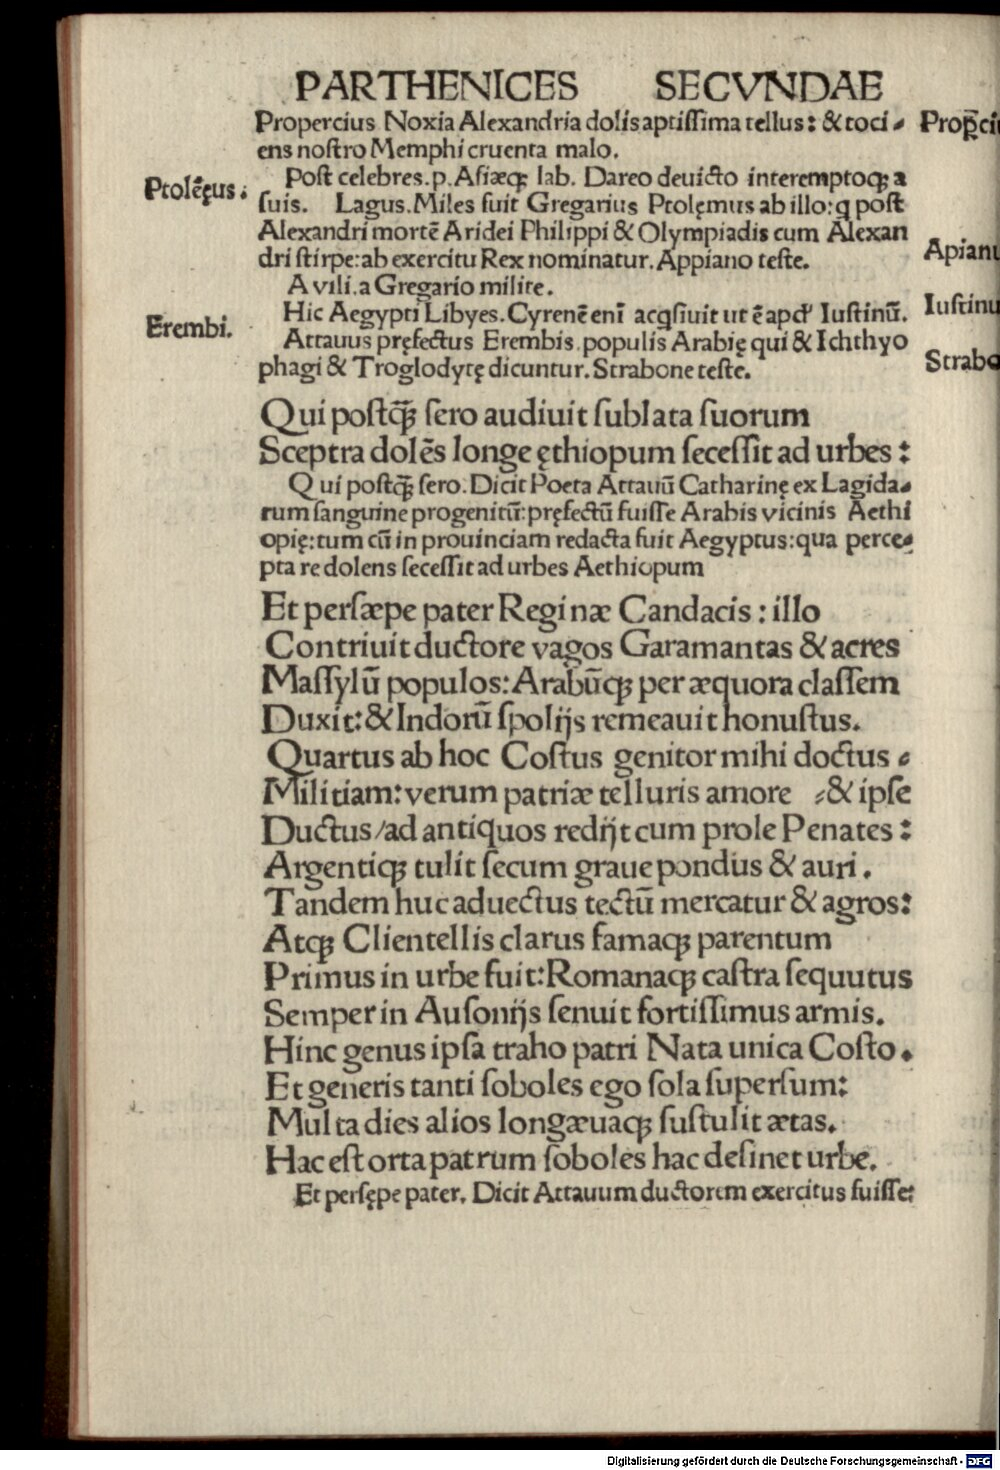 PARTHENICES SECVNDAE
Propercius Noxia Alexandria dolis aptiſſima tellus: & toci⸗
ens noſtro Memphi cruenta malo.
Poſt celebres.p.Aſiæqꝫ lab. Dareo deuicto interemptoqꝫ a
ſuis. Lagus.Miles fuit Gregarius Ptolęmus ab illo:q poſt
Alexandri mortē Aridei Philippi & Olympiadis cum Alexan
dri ſtirpe:ab exercitu Rex nominatur.Appiano teſte.
A vili.a Gregario milite.
Hic Aegypti Libyes.Cyrenē enī acqſiuit ut ē apd' Iuſtinū.
Attauus pręfectus Erembis.populis Arabię qui & Ichthyo
phagi & Troglodytę dicuntur.Strabone teſte.
Qui poſtq̄ꝫ ſero audiuit ſublata ſuorum
Sceptra dolēs longe ęthiopum ſeceſſit ad urbes:
Qui poſtq̄ꝫ ſero:Dicit Poeta Attauū Catharinę ex Lagida⸗
rum ſanguine progenitū:pręfectū fuiſſe Arabis vicinis Aethi
opię:tum cū in prouinciam redacta fuit Aegyptus:qua perce⸗
pta re dolens ſeceſſit ad urbes Aethiopum
Et perſæpe pater Reginæ Candacis: illo
Contriuit ductore vagos Garamantas & acres
Maſſylū populos:Arabūqꝫ per æquora claſſem
Duxit:& Indorū ſpolijs remeauit honuſtus.
Quartus ab hoc Coſtus genitor mihi doctus ⸗
Militiam:verum patriæ telluris amore ⸗& ipſe
Ductus/ad antiquos redijt cum prole Penates:
Argentiqꝫ tulit ſecum graue pondus & auri.
Tandem huc aduectus tectū mercatur & agros:
Atqꝫ Clientellis clarus famaqꝫ parentum
Primus in urbe fuit:Romanaqꝫ caſtra ſequutus
Semper in Auſonijs ſenuit fortiſſimus armis.
Hinc genus ipſa traho patri Nata unica Coſto.
Et generis tanti ſoboles ego ſola ſuperſum:
Multa dies alios longæuaqꝫ ſuſtulit ætas.
Hac eſt orta patrum ſoboles hac deſinet urbe.
Et perſępe pater. Dicit Attauum ductorem exercitus fuiſſe:
Ptolēęus.
Erembi.
Apianu
Iuſtinu
Strabo
Digitalisierung gefördert durch die Deutsche Forschungsgemeinschaft - DFG